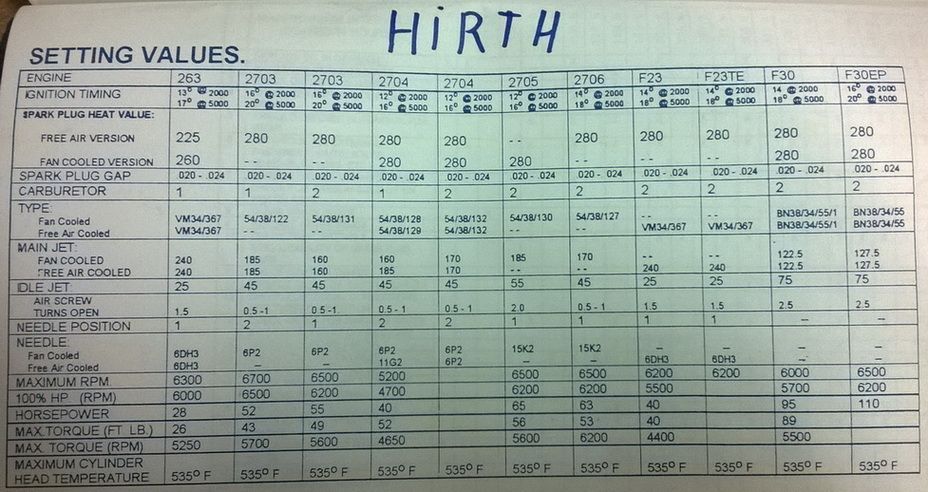 HiRTH
SETTING VALUES.
ENGINE 263 2703 2703 2704 2704 2705 2706 F23 F23TE F30 F30EP
IGNITION TIMING 13° @ 2000 16° @ 2000 16° @ 2000 12° @ 2000 12° @ 2000 12° @ 2000 14° @ 2000 14° @ 2000 14° @ 2000 14 @ 2000 16° @ 2000
17° @ 5000 20° @ 5000 20° @ 5000 16° @ 5000 16° @ 5000 16° @ 5000 18° @ 5000 18° @ 5000 18° @ 5000 18° @ 5000 20° @ 5000
SPARK PLUG HEAT VALUE:
FREE AIR VERSION 225 280 280 280 280 -- 280 280 280 280 280
FAN COOLED VERSION 260 -- -- 280 280 280 280 280
SPARK PLUG GAP .020 - .024 .020 - .024 .020 - .024 .020 - .024 .020 - .024 .020 - .024 .020 - .024 .020 - .024 .020 - .024 .020 - .024 .020 - .024
CARBURETOR 1 1 2 1 2 2 2 2 2 2 2
TYPE:
Fan Cooled VM34/367 54/38/122 54/38/131 54/38/128 54/38/132 54/38/130 54/38/127 -- -- BN38/34/55/1 BN38/34/55
Free Air Cooled VM34/367 -- -- 54/38/129 54/38/132 VM34/367 VM34/367 BN38/34/55/1 BN38/34/55
MAIN JET:
FAN COOLED 240 185 160 160 170 185 170 -- -- 122.5 127.5
FREE AIR COOLED 240 185 160 185 170 -- -- 240 240 122.5 127.5
IDLE JET: 25 45 45 45 45 55 45 25 25 75 75
AIR SCREW
TURNS OPEN 1.5 0.5 -1 0.5 -1 0.5 - 1 0.5 - 1 2.0 0.5 - 1 1.5 1.5 2.5 2.5
NEEDLE POSITION 1 2 1 2 2 1 1 1 1 -- --
NEEDLE:
Fan Cooled 6DH3 6P2 6P2 6P2 6P2 15K2 15K2 -- -- -- --
Free Air Cooled 6DH3 -- -- 11G2 6P2 6DH3 6DH3 -- --
MAXIMUM RPM 6300 6700 6500 5200 6500 6500 6200 6200 6000 6500
100% HP (RPM) 6000 6500 6200 4700 6200 6200 5500 5700 6200
HORSEPOWER 28 52 55 40 65 63 40 95 110
MAX.TORQUE (FT. LB.) 26 43 49 52 56 53 40 89
MAX. TORQUE (RPM) 5250 5700 5600 4650 5600 6200 4400 5500
MAXIMUM CYLINDER
HEAD TEMPERATURE 535° F 535° F 535° F 535° F 535° F 535° F 535° F 535° F 535° F 535° F